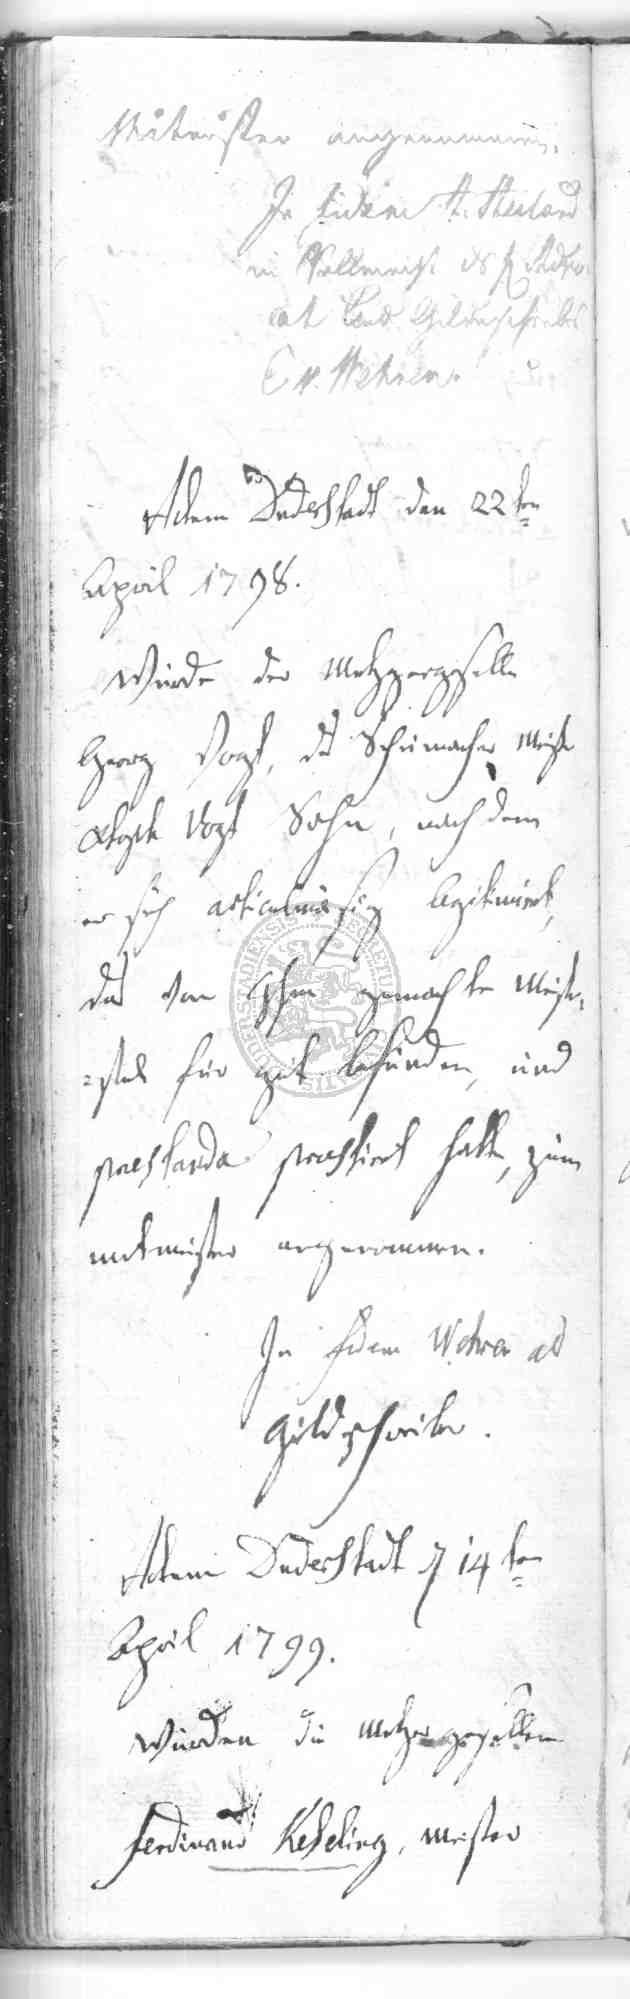 Mitmeister angenommen.
In fidem
in Vollmacht des H
als Gildenschreiber
C. W. Wehren.
Actum Duderstadt den 22ten
April 1798.
Wurde der Metzgergeselle
Georg Vogt, des Schumacher Meist
Vogt Sohn, nach dem
er sich articulmäsig legitimirt,
das von Ihm gemachte Meister
stük für gut befunden, und
praestanda praestirt hatte, zum
mitmeister angenommen.
In fidem Wehren als
Gildschreiber.
Actum Duderstadt d 14ten
April 1799.
Wurden die Metzgergesellen
Ferdinand Keseling, Meister
SECRETUM
DUDERSTADIENSIS